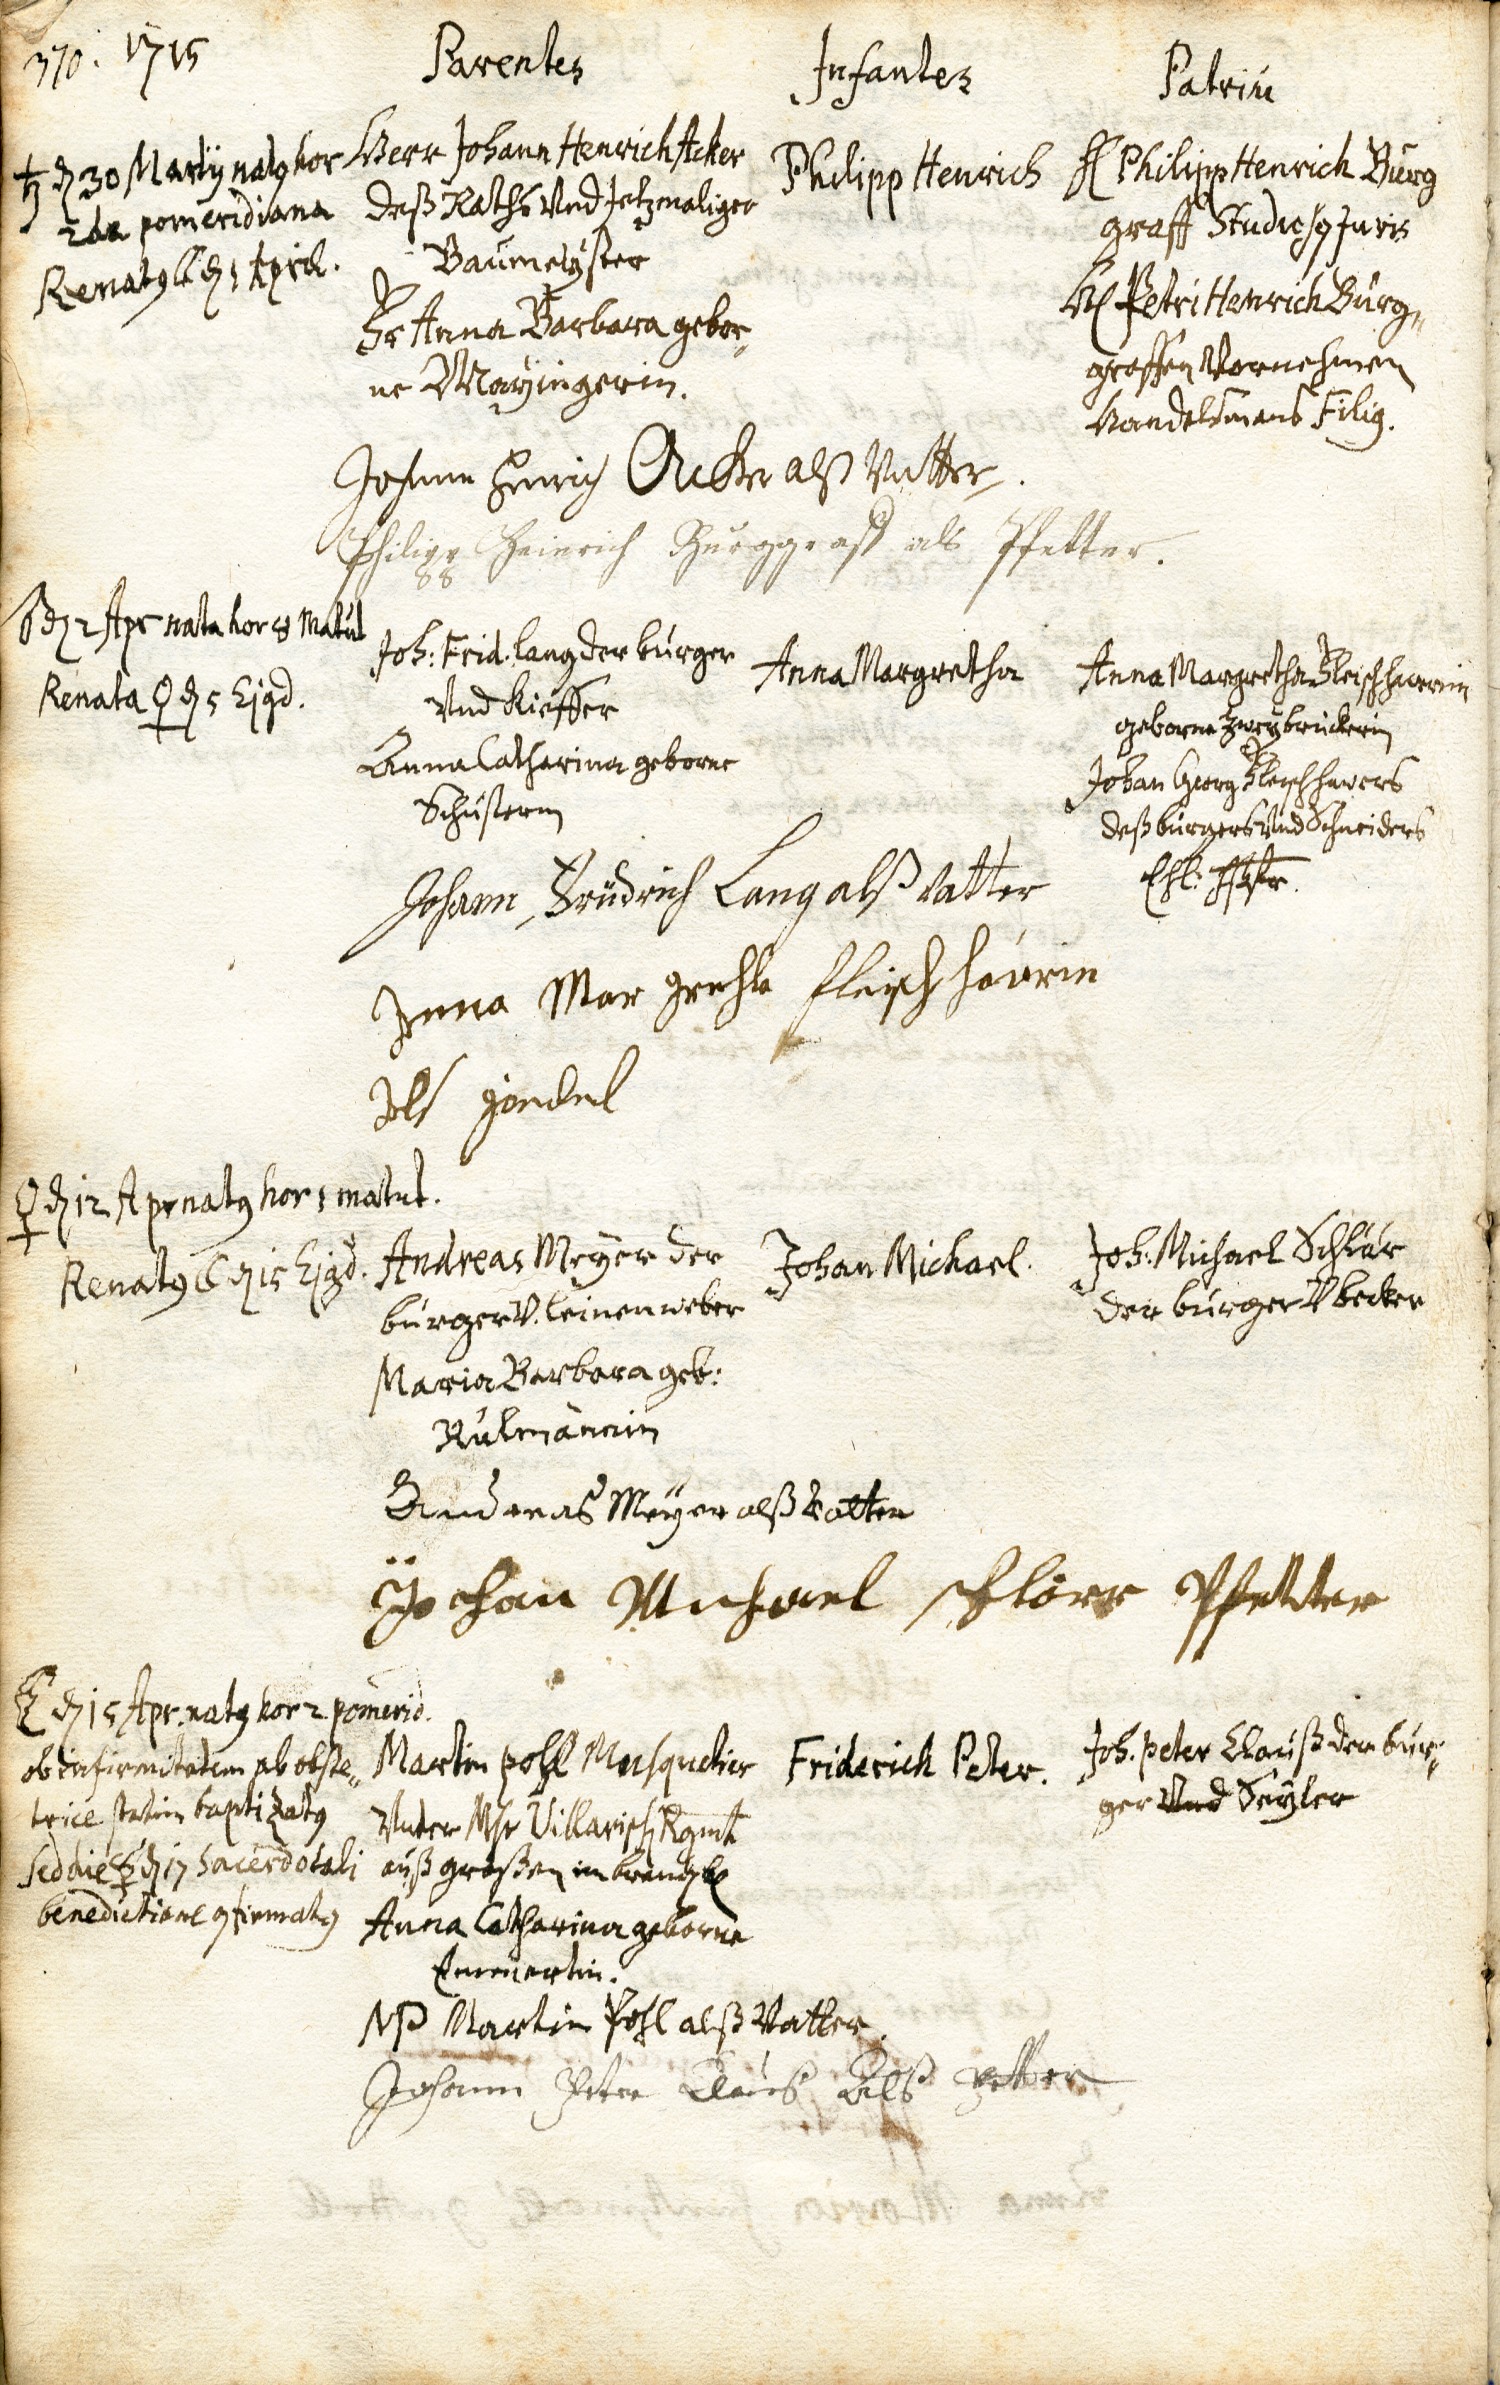 370. 1715
Parentes
Infantes
Patrini
♄ d 30 Martij nat9 hor
2da pomeridiana
Renat9 ☾ d 1 April.
Herr Johann Henrich Acker
deß Raths Vnd Jetzmaliger
Baumeÿster
Fr Anna Barbara gebor„
ne Maÿingerin.
Philipp Henrich
H Philipp Henrich Burg
graff Studios9 Juris
H Petri Henrich Burg„
graffen Vornehmen
Handelsmans Filig.
Johann Henrich Acker alß Vatter.
Philipp Heinrich Burggraff als Pfetter.
d 2 Apr nata hor 8 Matut
Renata ♀ d 5 Ejgd.
Joh: Frid. Lang der burger
Vnd Kieffer
Anna Catharina geborne
Schusterin
Anna Margretha
Anna Margretha Fleischhawerin
geborne Zweybruckerin
Johan Georg Fleischhawers
deß burgers Vnd Schneiders
Ehl:
Johann Fridrich Lang alß Vatter
Anna Mar gretha fleisch haurin
Als
♀ d 12 Apr nat9 hor 1 matut.
Renat9 ☾ d 15 Ejgd.
Andreas Meyer der
burger V. leinenweber
Maria Barbara geb:
Kulmännin
Johan Michael.
Joh: Michael Schlär
der burger V becker
Andreas Meyer alß Vatter
Johan Michael schlörr Pfetter
☾ d 15 Apr. nat9 hor 2 pomerid.
ob infirmitatem ab obste„
trice statim baptizat9
sed die ☿ d 17 sacerdotali
benedictione 9firmat9
Martin pohl Musquetier
Vnter Villarisch Rgmt
auß großen
Anna Catharina geborne
Emmertin.
Friderich Peter.
Joh. peter Clauß der bur„
ger Vnd Seyler
MP Martin Pohl alß Vatter.
Johann Peter Clauß Alß petter